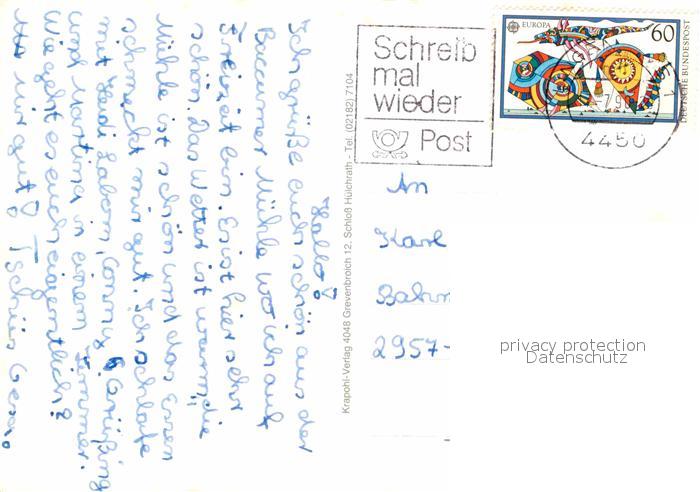 Hallo!
Ich grüße euch schön aus der
Baccumer Mühle wo ich auf
Freizeit bin. Es ist hier sehr
schön. Das Wetter ist warm, die
Mühle ist schön und das Essen
schmeckt mir gut. Ich schlafe
mit Heidi
und Martina in einem Zimmer.
Wie geht es euch eigentlich?
Mir gut! Tschüss
Krapohl-Verlag 4048 Grevenbroich 12, Schloß Hülchrath - Tel. (02182) 7104
Schreib
mal
wieder
Post
EUROPA
60
DEUTSCHE BUNDESPOST
4450
An
Karl
Bahn
2957-
privacy protection
Datenschutz